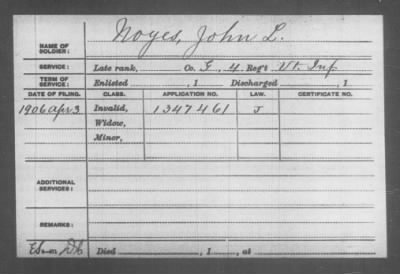 NAME OF SOLDIER: Noyes, John L.
SERVICE: Late rank, Co. G, 4 Reg't Vt. Inf
TERM OF SERVICE: Enlisted , 1 Discharged , 1
DATE OF FILING. CLASS. APPLICATION NO. LAW. CERTIFICATE NO.
1906 Apr 3 Invalid, 1347461 J
Widow,
Minor,
ADDITIONAL SERVICES:
REMARKS:
Died , 1 , at